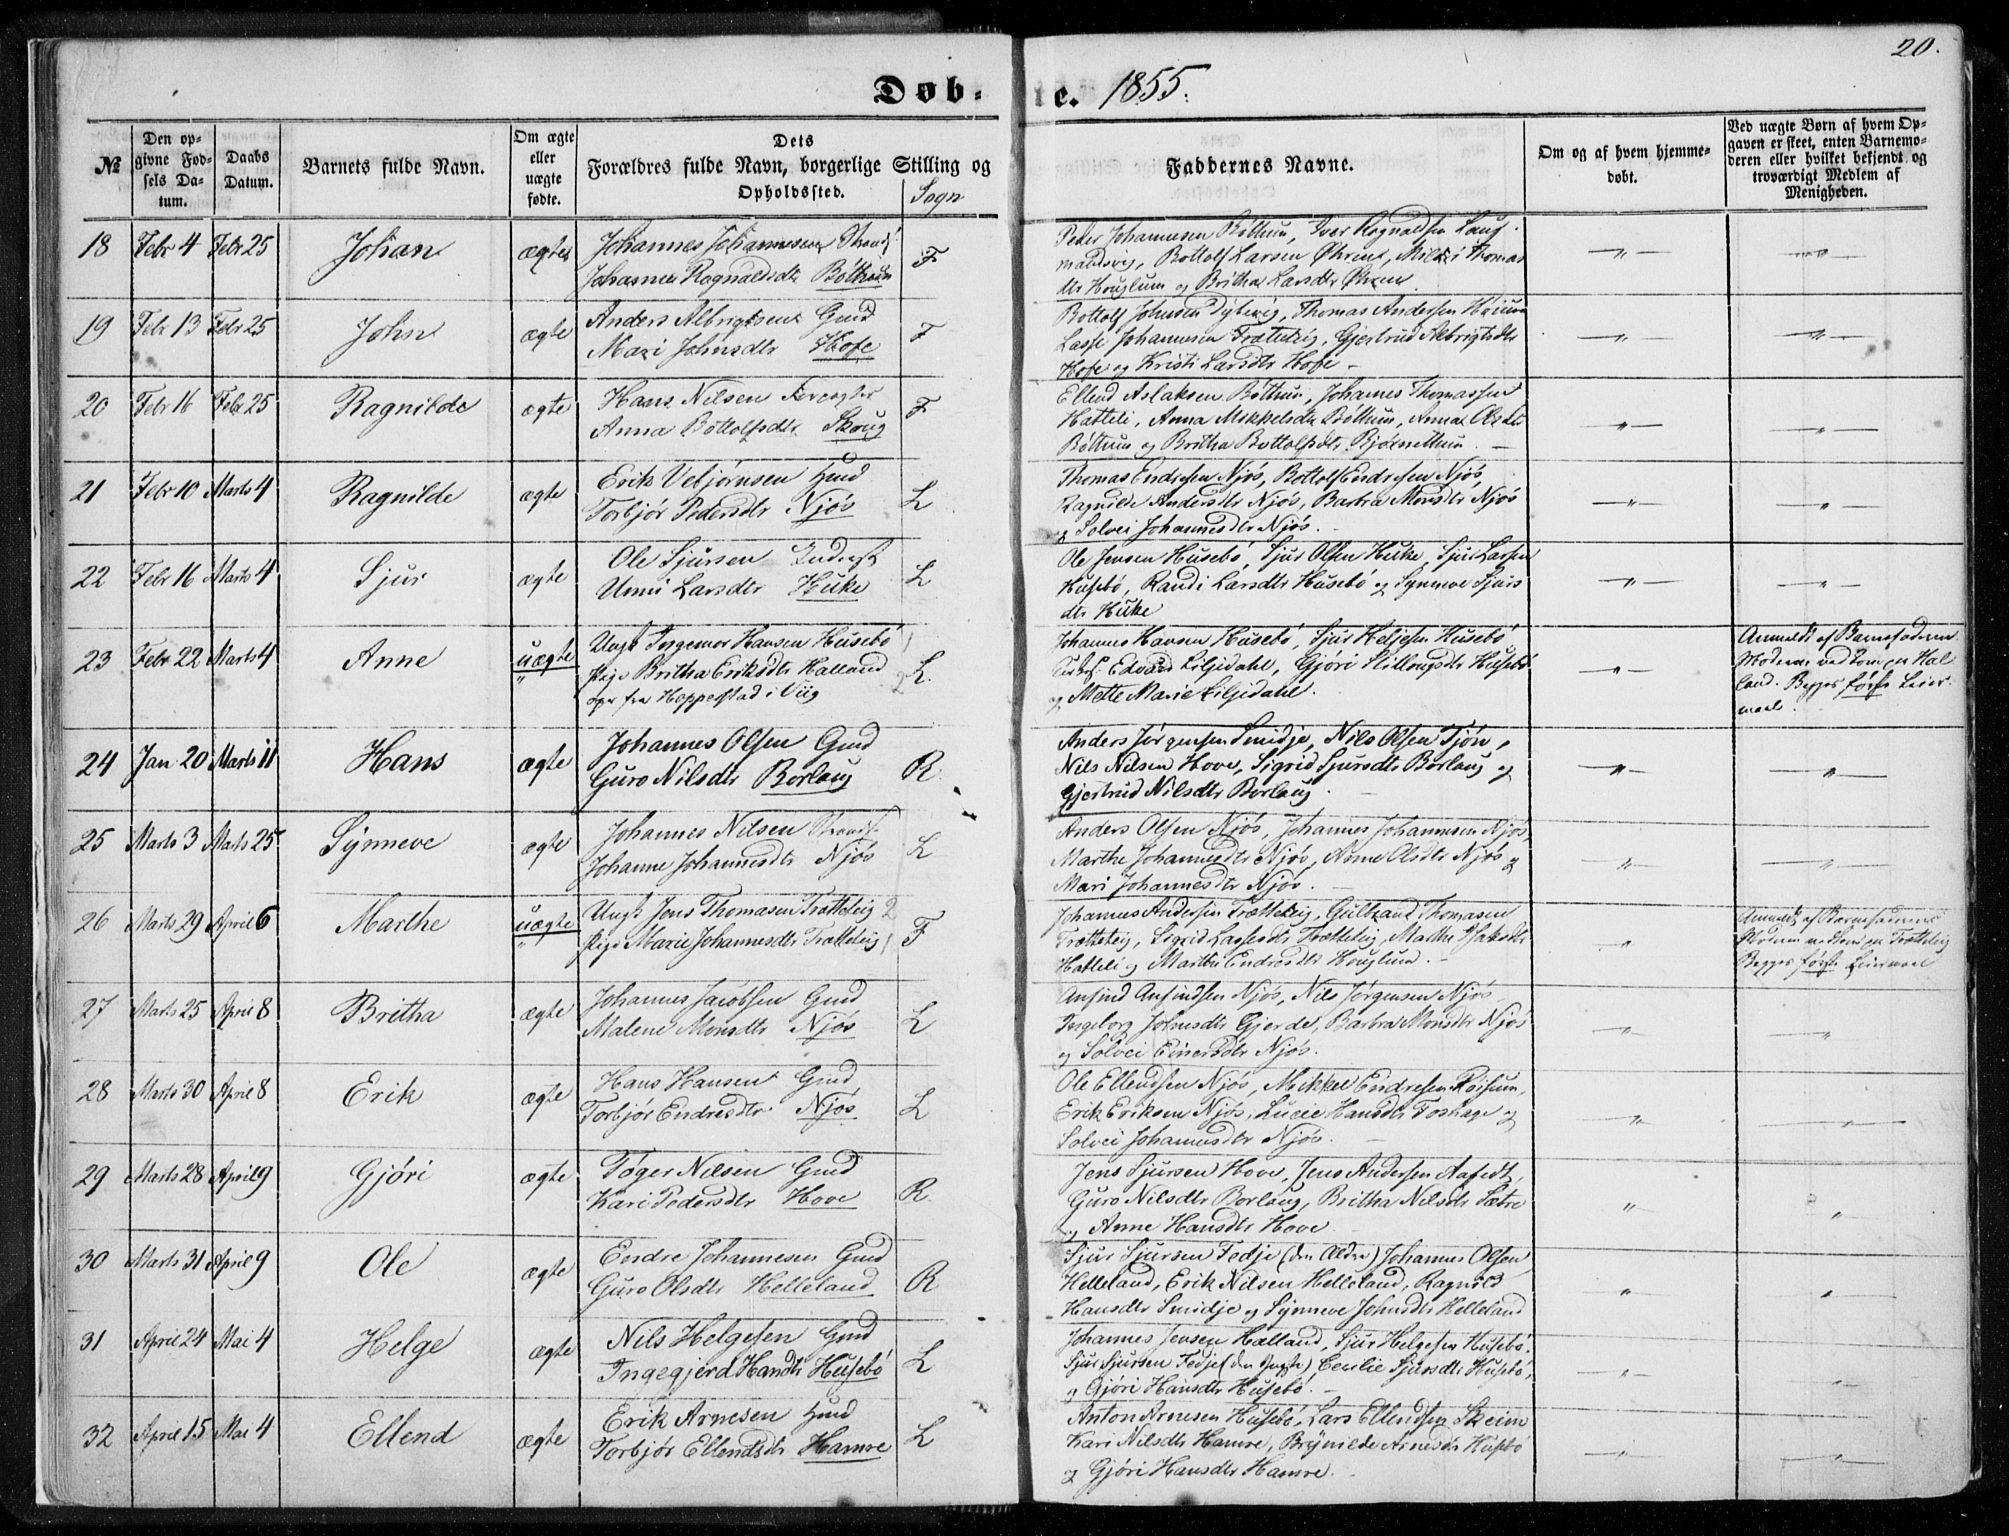 20.
Døb- te. 1855.
№
Den op-
givne Fød-
sels Da-
tum.
Daabs
Datum.
Barnets fulde Navn.
Om ægte
eller
uægte
fødte.
Dets
Forældres fulde Navn, borgerlige Stilling og
Opholdssted.
Sogn
Faddernes Navne.
Om og af hvem hjemme-
døbt.
Ved uægte Børn af hvem Op-
gaven er skeet, enten Barnemo-
deren eller hvilket bekjendt og
troværdigt Medlem af
Menigheden.
18 Febr 4 Febr 25 Johan ægte
Johannes Johannesen Strands
Johanne Ragnaldsdtr Bøthun F
Peder Johannesen Bøttun, Iver Ragnaldsen
Bottolf Larsen Øhren, Thomas
dtr Houglum og Britha Larsdtr Øhren.
19 Febr 13 Febr 25 John ægte
Anders Albrigtsen Gmd
Mari Johnsdtr Hofe F
Bottolf Johnsen Dybevig, Thomas Andersen
Lasse Johannesen Trætteteig, Gjertrud Albrigtsdtr
Hofe og Kristi Larsdtr Hofe
20 Febr 16 Febr 25 Ragnilde ægte
Hans Nilsen
Anna Bottolfsdtr Skoug F
Ellend Aslaksen Bøttun, Johannes Thomassen
Hatleli, Anna Mikkelsdtr Bøttun, Anna Olsdtr
Bøttun og Britha Bottolfsdtr Bjørnettun
21 Febr 10 Marts 4 Ragnilde ægte
Erik Vetjørnsen Hmd
Torbjør Pedersdtr Njøs L
Thomas Endresen Njøs, Bottolf Endresen Njøs,
Ragnilde Andersdtr Njøs, Barbra Monsdtr Njøs
og Solvei Johannesdtr Njøs.
22 Febr 16 Marts 4 Sjur ægte
Ole Sjursen
Unni Larsdtr Huke L
Ole Jensen Husebö, Sjur Olsen Huke, Sjur Larsen
Husebö, Randi Larsdtr Husebö og Synneve Sjurs
dtr Huke
23 Febr 22 Marts 4 Anne uægte
Ungk Torgemor Hansen Husebö 1
Pige Britha Eriksdtr Halland
opr fra Hoppestad i Viig 2 L.
Johannes Hansen Husebö, Sjur Helgesen Husebö
Edvard Liljedahl, Gjöri Husebö
og Mette Marie Liljedahl.
Anmeldt af Barnefaderen
Moderen ved Hal
land. Begges første Leier-
maal.
24 Jan 20 Marts 11 Hans ægte
Johannes Olsen Gmd
Guro Nilsdtr Borlaug R
Anders Jørgensen Smidje, Nils Olsen Tjøn,
Nils Nilsen Hove, Sigrid Sjursdtr Borlaug og
Gjertrud Nilsdtr Borlaug.
25 Marts 3 Marts 25 Synneve ægte
Johannes Nilsen Strands
Johanne Johannesdtr Njøs L
Anders Olsen Njøs, Johannes Johannesen Njøs,
Marthe Johannesdtr Njøs, Anne Olsdtr Njøs og
Mari Johannesdtr Njøs.
26 Marts 29 April 6 Marthe uægte
Ungk Jens Thomasen Trætteteig 2
Pige Marie Johannesdtr Trætteteig 1 F
Johannes Andersen Trætteteig, Gulbrand Thomasen
Trætteteig, Sigrid Lassesdtr Trætteteig, Marthe Isaksdtr
Hatleli og Martha Endresdtr Houglum.
Anmeldt af Barnefaderen
Moderen Trætteteig
Begges første Leiermaal
27 Marts 25 April 8 Britha ægte
Johannes Jacobsen Gmd
Malene Monsdtr Njøs L
Ansind Ansindsen Njøs, Nils Jørgensen Njøs
Ingeborg Johnsdtr Gjerde, Barbra Monsdtr Njøs
og Solvei Einersdtr Njøs.
28 Marts 30 April 8 Erik ægte
Hans Hansen Gmd
Torbjør Endresdtr Njøs L
Ole Ellendsen Njøs, Mikkel Endresen Röisum,
Erik Eriksen Njøs, Lucie Hansdtr Foshage og
Solvei Johannesdtr Njøs.
29 Marts 28 April 9 Gjøri ægte
Tøger Nilsen Gmd
Kari Pedersdtr Hove R
Jens Sjursen Hove, Jens Andersen Aafedt,
Guro Nilsdtr Borlaug, Britha Nilsdtr Sætre
og Anne Hansdtr Hove
30 Marts 31 April 9 Ole ægte
Endre Johannesen Gmd
Guro Olsdtr Helleland R
Sjur Sjursen Fedje (den Ældre) Johannes Olsen
Helleland, Erik Nilsen Helleland, Ragnild
Hansdtr Smidje og Synneve Johnsdtr Helleland
31 April 24 Mai 4 Helge ægte
Nils Helgesen Gmd
Ingegjerd Hansdtr Husebö L
Johannes Jensen Halland, Sjur Helgesen Husebö,
Sjur Sjursen Fedje (den Yngre) Cecilie Sjursdtr Husebö,
og Gjöri Hansdtr Husebö.
32 April 15 Mai 4 Ellend ægte
Erik Arnesen Hmd
Torbjør Ellendsdtr Hamre L
Anton Arnesen Husebö, Lars Ellendsen Skeim
Kari Nilsdtr Hamre, Brynilde Arnesdtr Husebö
og Gjöri Hansdtr Hamre.